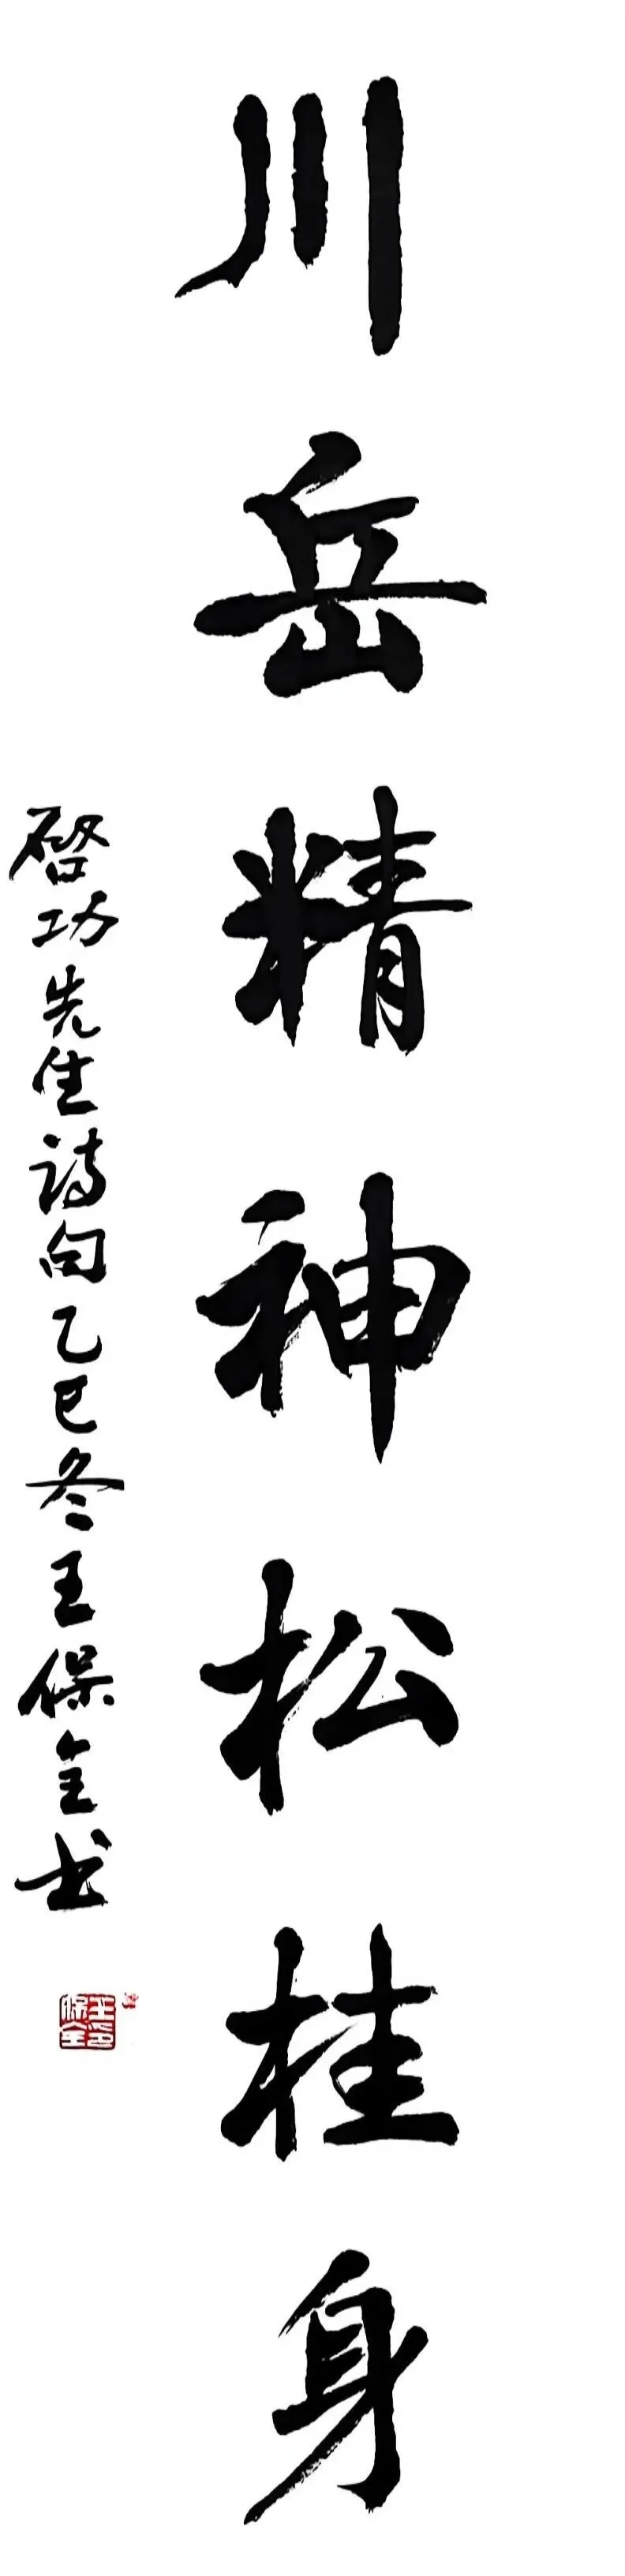 川岳精神松桂身
啓功先生詩句乙巳冬王保全书
王保全印